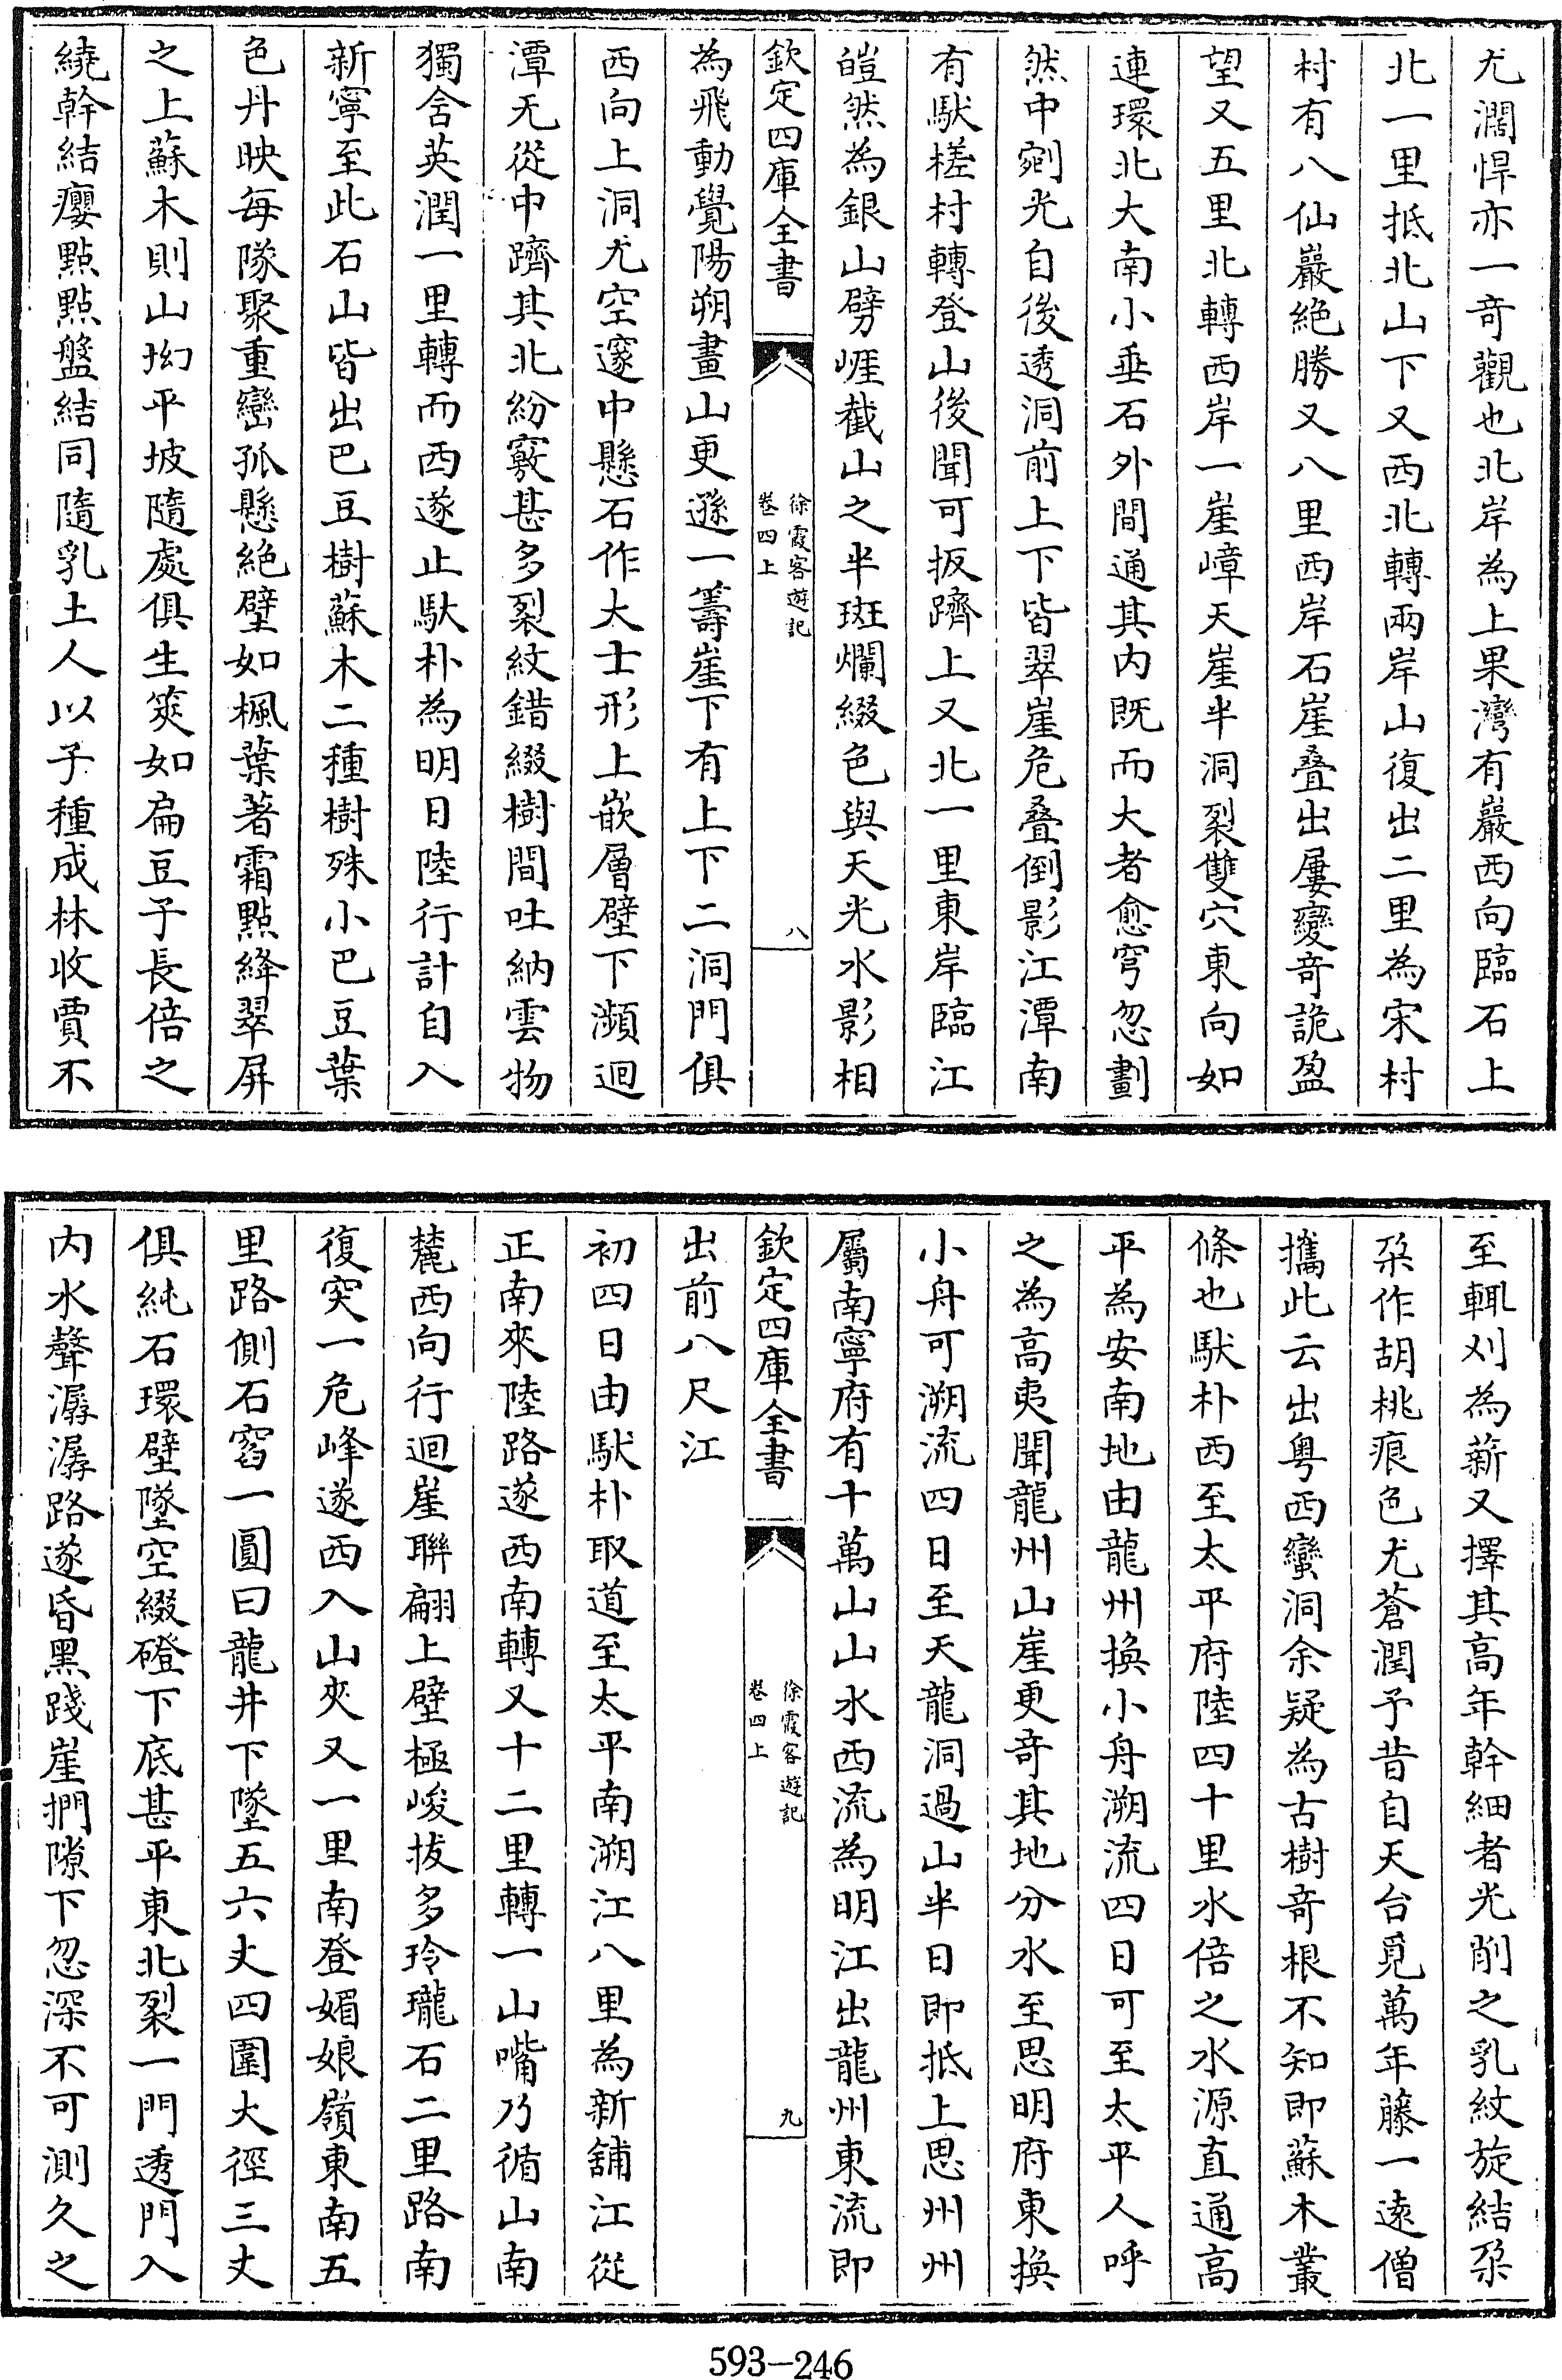 尤濶悍亦一奇觀也北岸為上果灣有巖西向臨石上
北一里抵北山下又西北轉兩岸山復出二里為宋村
村有八仙巖絶勝又八里西岸石崖叠出屢變奇詭盈
望又五里北轉西岸一崖嶂天崖半洞裂雙穴東向如
連環北大南小垂石外間通其内既而大者愈穹忽劃
然中剜光自後透洞前上下皆翠崖危叠倒影江潭南
有馱槎村轉登山後聞可扳躋上又北一里東岸臨江
皚然為銀山劈崕截山之半斑斕綴色與天光水影相
欽定四庫全書
徐霞客遊記
卷四上
八
為飛動覺陽朔畫山更遜一籌崖下有上下二洞門俱
西向上洞尤空邃中懸石作大士形上嵌層壁下瀕迴
潭无從中躋其北紛竅甚多裂紋錯綴樹間吐納雲物
獨舍英潤一里轉而西遂止馱朴為明日陸行計自入
新寧至此石山皆出巴豆樹蘇木二種樹殊小巴豆葉
色丹映每隊聚重巒孤懸絶壁如楓葉著霜點綘翠屏
之上蘇木則山坳平坡隨處俱生筴如扁豆子長倍之
繞幹結癭點點盤結同隨乳土人以子種成林收賈不
至輒刈為薪又擇其高年幹細者光削之乳紋旋結朶
朶作胡桃痕色尤蒼潤予昔自天台覓萬年藤一遠僧
攜此云出粤西蠻洞余疑為古樹奇根不知即蘇木叢
條也馱朴西至太平府陸四十里水倍之水源直通高
平為安南地由龍州換小舟溯流四日可至太平人呼
之為高夷聞龍州山崖更奇其地分水至思明府東換
小舟可溯流四日至天龍洞過山半日即抵上思州州
屬南寧府有十萬山山水西流為明江出龍州東流即
欽定四庫全書
徐霞客遊記
卷四上
九
出前八尺江
初四日由馱朴取道至太平南溯江八里為新舖江從
正南來陸路遂西南轉又十二里轉一山嘴乃循山南
麓西向行迴崖聯翩上壁極峻拔多玲瓏石二里路南
復突一危峰遂西入山夾又一里南登媚娘嶺東南五
里路側石窞一圓曰龍井下墜五六丈四圍大徑三丈
俱純石環壁墜空綴磴下底甚平東北裂一門透門入
内水聲潺潺路遂昏黑踐崖捫隙下忽深不可測久之
593-246